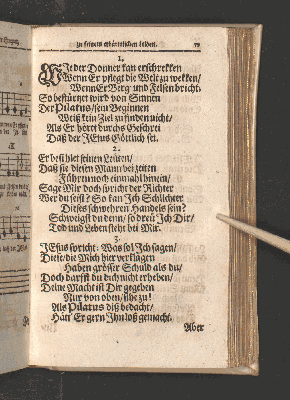 zu seinem erbärmlichen bildnis. 79
1.
Wie der Donner kan erschrekken
Wenn Er pflegt die Welt zu wekken/
Wenn Er Berg und Felsen bricht:
So bestürtzet wird von Sinnen
Der Pilatus/ sein Beginnen
Weiß kein Ziel zu finden nicht/
Als Er höret durchs Geschrei
Daß der JEsus Göttlich sei.
2.
Er befihlet seinen Leuten/
Daß sie diesen Mann bei zeiten
Führen noch einmahl hinein/
Sage Mir doch spricht der Richter
Wer du seist? So kan Jch Schlichter
Dieses schwehren Handels sein?
Schweigst du denn/ so dreü Jch Dir/
Tod und Leben steht bei Mir.
3.
JEsus spricht: Was sol Jch sagen/
Die/ die Mich hier verklagen
Haben grösser Schuld als du/
Doch darfst du dich nicht erheben/
Deine Macht ist Dir gegeben
Nur von oben/ sihe zu!
Als Pilatus diß bedacht/
Hätt' Er gern Jhn loß gemacht.
Aber